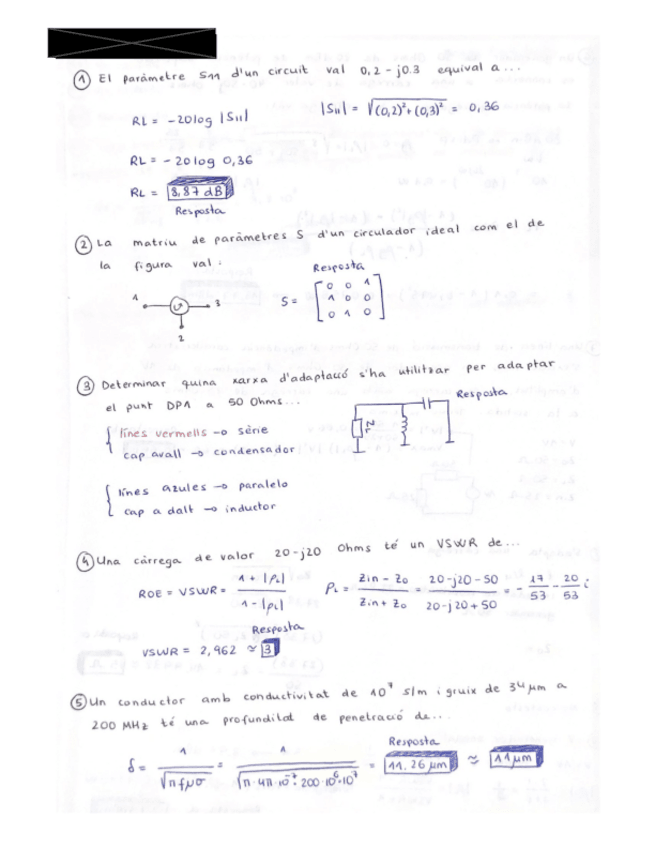 ① El paràmetre S11 d'un circuit val 0,2 - j0.3 equival a...
RL = -20log |S11|
|S11| = √(0,2)²+(0,3)² = 0,36
RL = -20log 0,36
RL = 8,87 dB
Resposta
② La matriu de paràmetres S d'un circulador ideal com el de
la figura val:
Resposta
1 3 2
S = [ 0 0 1
1 0 0
0 1 0 ]
③ Determinar quina xarxa d'adaptació s'ha utilitzar per adaptar
el punt DP1 a 50 Ohms...
Resposta
ZL
línes vermells → sèrie
cap avall → condensador
línes azules → paralelo
cap a dalt → inductor
④ Una càrrega de valor 20-j20 Ohms té un VSWR de...
ROE = VSWR = 1 + |ρL| / 1 - |ρL|
ρL = Zin - Zo / Zin + Zo = 20-j20-50 / 20-j20+50 = - 17/53 - 20/53 i
Resposta
VSWR = 2,962 ≈ 3
⑤ Un conductor amb conductivitat de 10⁷ S/m i gruix de 34 μm a
200 MHz té una profunditat de penetració de...
Resposta
δ = 1 / √π f μ σ = 1 / √π·4π·10⁻⁷·200·10⁶·10⁷ = 11,26 μm ≈ 11 μm